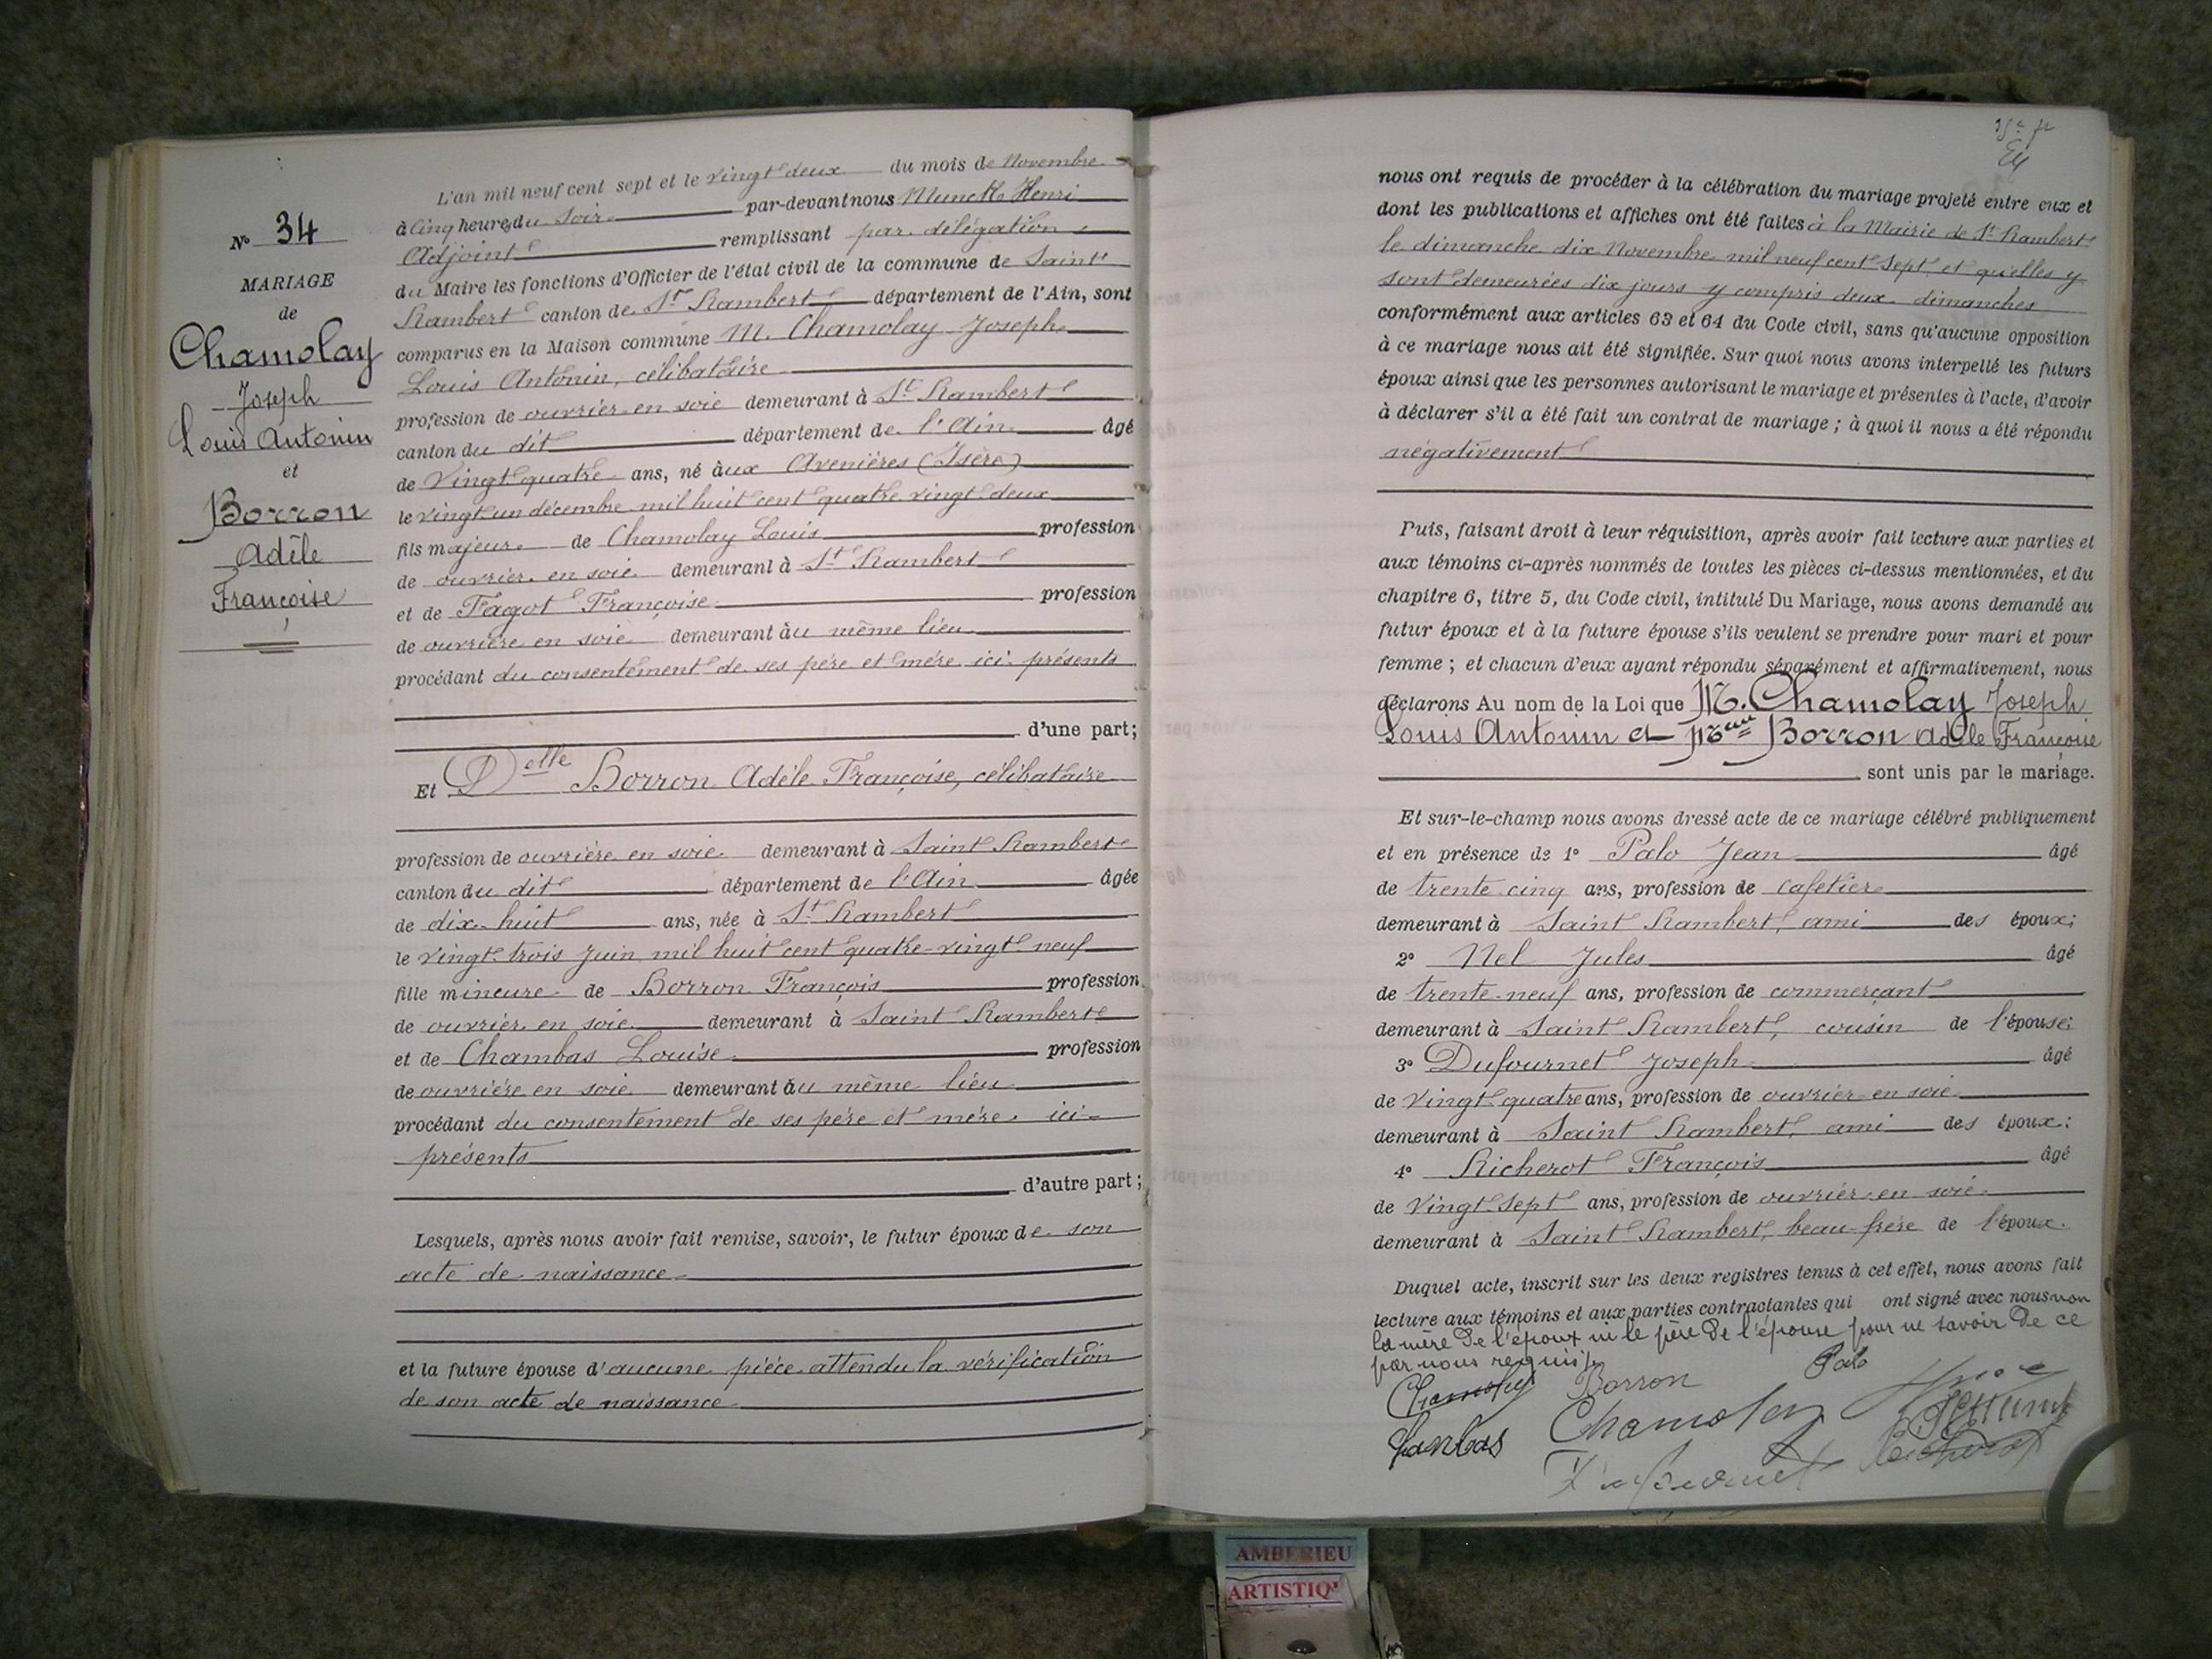 L'an mil neuf cent sept et le vingt deux du mois de Novembre
à cinq heures du soir par-devant nous Munck Henri
Adjoint remplissant par délégation
du Maire les fonctions d'Officier de l'état civil de la commune de Saint
Rambert canton de St Rambert département de l'Ain, sont
comparus en la Maison commune M. Chamolay Joseph
Louis Antonin, célibataire
profession de ouvrier en soie demeurant à St Rambert
canton du dit département de l'Ain âgé
de Vingt quatre ans, né aux Avenières (Isère)
le vingt un décembre mil huit cent quatre vingt deux
fils majeur de Chamolay Louis profession
de ouvrier en soie demeurant à St Rambert
et de Fagot Françoise profession
de ouvrière en soie demeurant au même lieu
procédant du consentement de ses père et mère ici présents
d'une part;
Et Delle Borron Adèle Françoise, célibataire
profession de ouvrière en soie demeurant à Saint Rambert
canton du dit département de l'Ain âgée
de dix huit ans, née à St Rambert
le vingt trois Juin mil huit cent quatre-vingt neuf
fille mineure de Borron François profession
de ouvrier en soie demeurant à Saint Rambert
et de Chambas Louise profession
de ouvrière en soie demeurant au même lieu
procédant du consentement de ses père et mère ici
présents
d'autre part;
Lesquels, après nous avoir fait remise, savoir, le futur époux de son
acte de naissance
et la future épouse d'aucune pièce attendu la vérification
de son acte de naissance
No 34
MARIAGE
de
Chamolay
Joseph
Louis Antonin
et
Borron
Adèle
Françoise
nous ont requis de procéder à la célébration du mariage projeté entre eux et
dont les publications et affiches ont été faites à la Mairie de St Rambert
le dimanche dix Novembre mil neuf cent sept et qu'elles y
sont demeurées dix jours y compris deux dimanches
conformément aux articles 63 et 64 du Code civil, sans qu'aucune opposition
à ce mariage nous ait été signifiée. Sur quoi nous avons interpellé les futurs
époux ainsi que les personnes autorisant le mariage et présentes à l'acte, d'avoir
à déclarer s'il a été fait un contrat de mariage ; à quoi il nous a été répondu
négativement
Puis, faisant droit à leur réquisition, après avoir fait lecture aux parties et
aux témoins ci-après nommés de toutes les pièces ci-dessus mentionnées, et du
chapitre 6, titre 5, du Code civil, intitulé Du Mariage, nous avons demandé au
futur époux et à la future épouse s'ils veulent se prendre pour mari et pour
femme ; et chacun d'eux ayant répondu séparément et affirmativement, nous
déclarons Au nom de la Loi que M. Chamolay Joseph
Louis Antonin et Borron Adèle Françoise
sont unis par le mariage.
Et sur-le-champ nous avons dressé acte de ce mariage célébré publiquement
et en présence de 1° Palo Jean âgé
de trente cinq ans, profession de cafetier
demeurant à Saint Rambert, ami des époux;
2° Nel Jules âgé
de trente-neuf ans, profession de commerçant
demeurant à Saint Rambert, cousin de l'épouse;
3° Dufournet Joseph âgé
de Vingt quatre ans, profession de ouvrier en soie
demeurant à Saint Rambert, ami des époux;
4° Richerot François âgé
de Vingt Sept ans, profession de ouvrier en soie
demeurant à Saint Rambert, beau frère de l'époux.
Duquel acte, inscrit sur les deux registres tenus à cet effet, nous avons fait
lecture aux témoins et aux parties contractantes qui ont signé avec nous non
la mère de l'époux ni le père de l'épouse pour ne savoir de ce
par nous requis
Chamolay Borron Palo
Chamolay
Dufournet Richerot
AMBERIEU
ARTISTIQ'